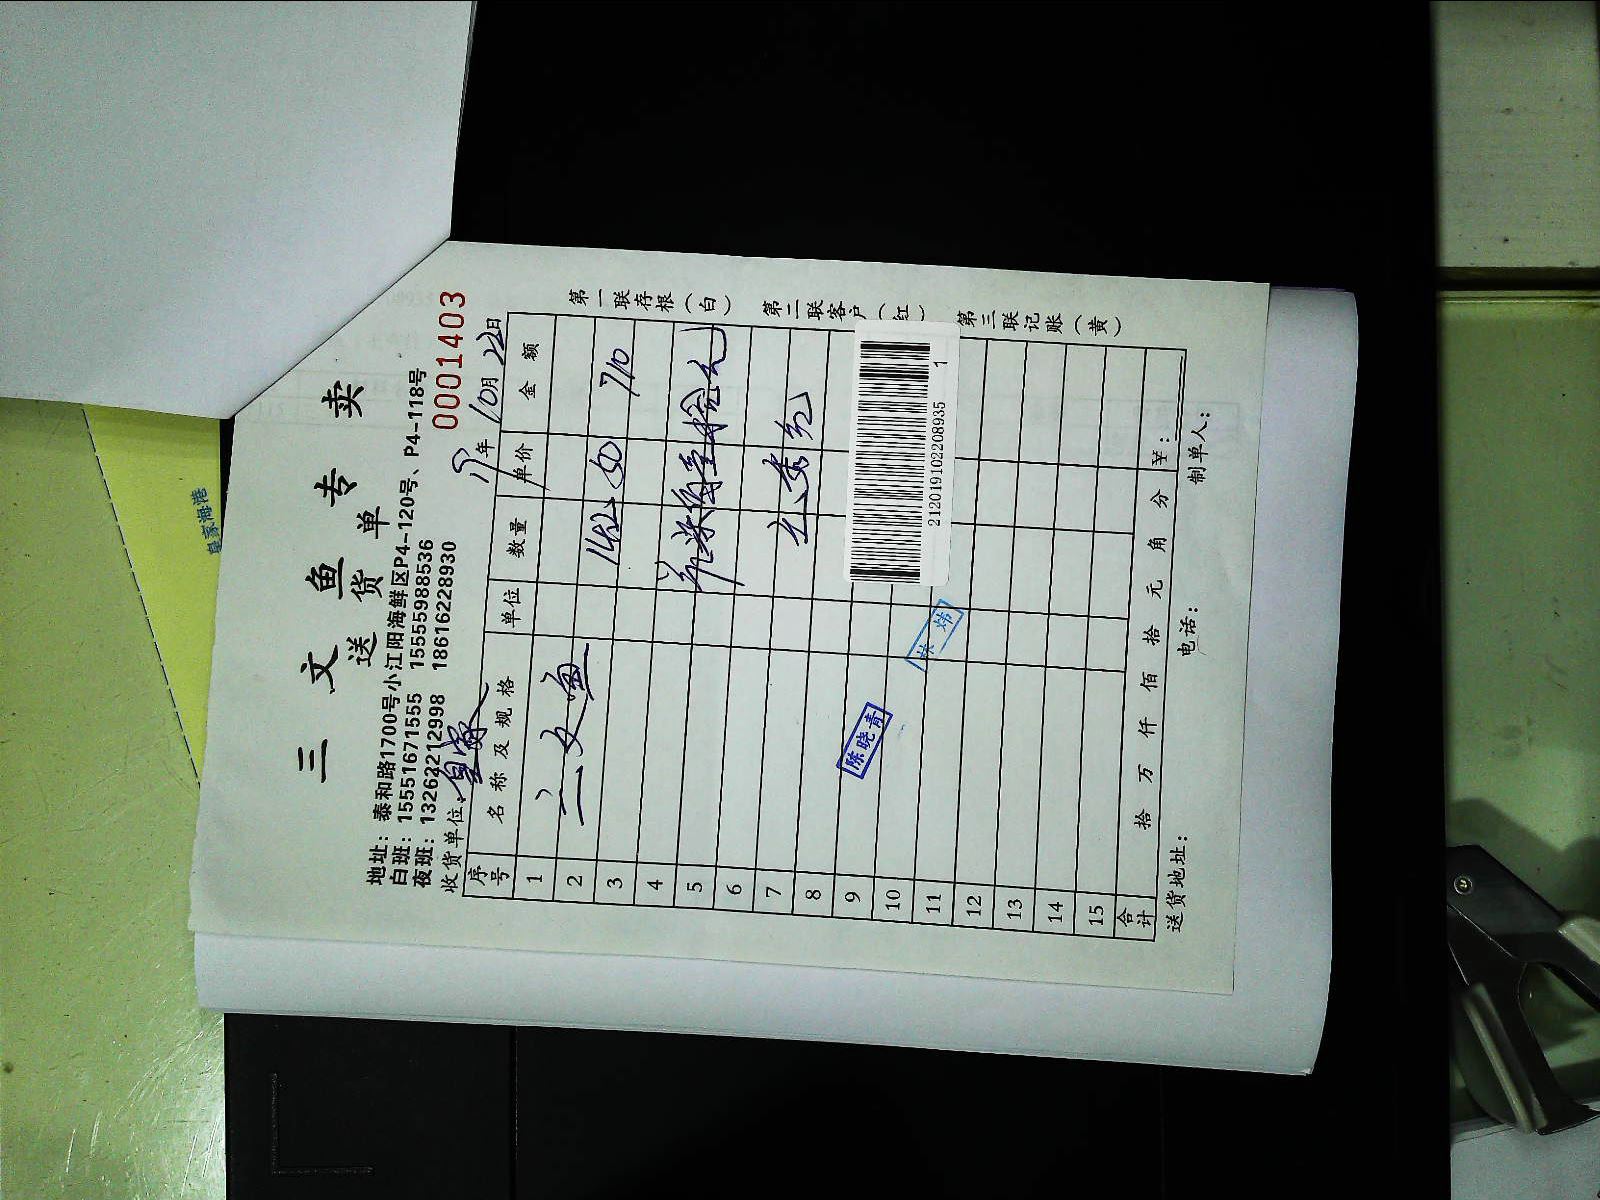 三文鱼专卖
送货单
地址：泰和路1700号小江阳海鲜区P4-120号、P4-118号
白班：15551671555 15555988536
夜班：13262212998 18616228930
0001403
收货单位：皇家 19年10月22日
序号 名称及规格 单位 数量 单价 金额
1 三文鱼
2 14.2 50 710
3
4
5
6
7
8
9
10
11
12
13
14
15
合计 拾 万 仟 佰 拾 元 角 分 ￥：
送货地址： 电话： 制单人：
第一联存根（白）
第二联客户（红）
第三联记账（黄）
2120191022208935 1
陈晓青
皇家海港